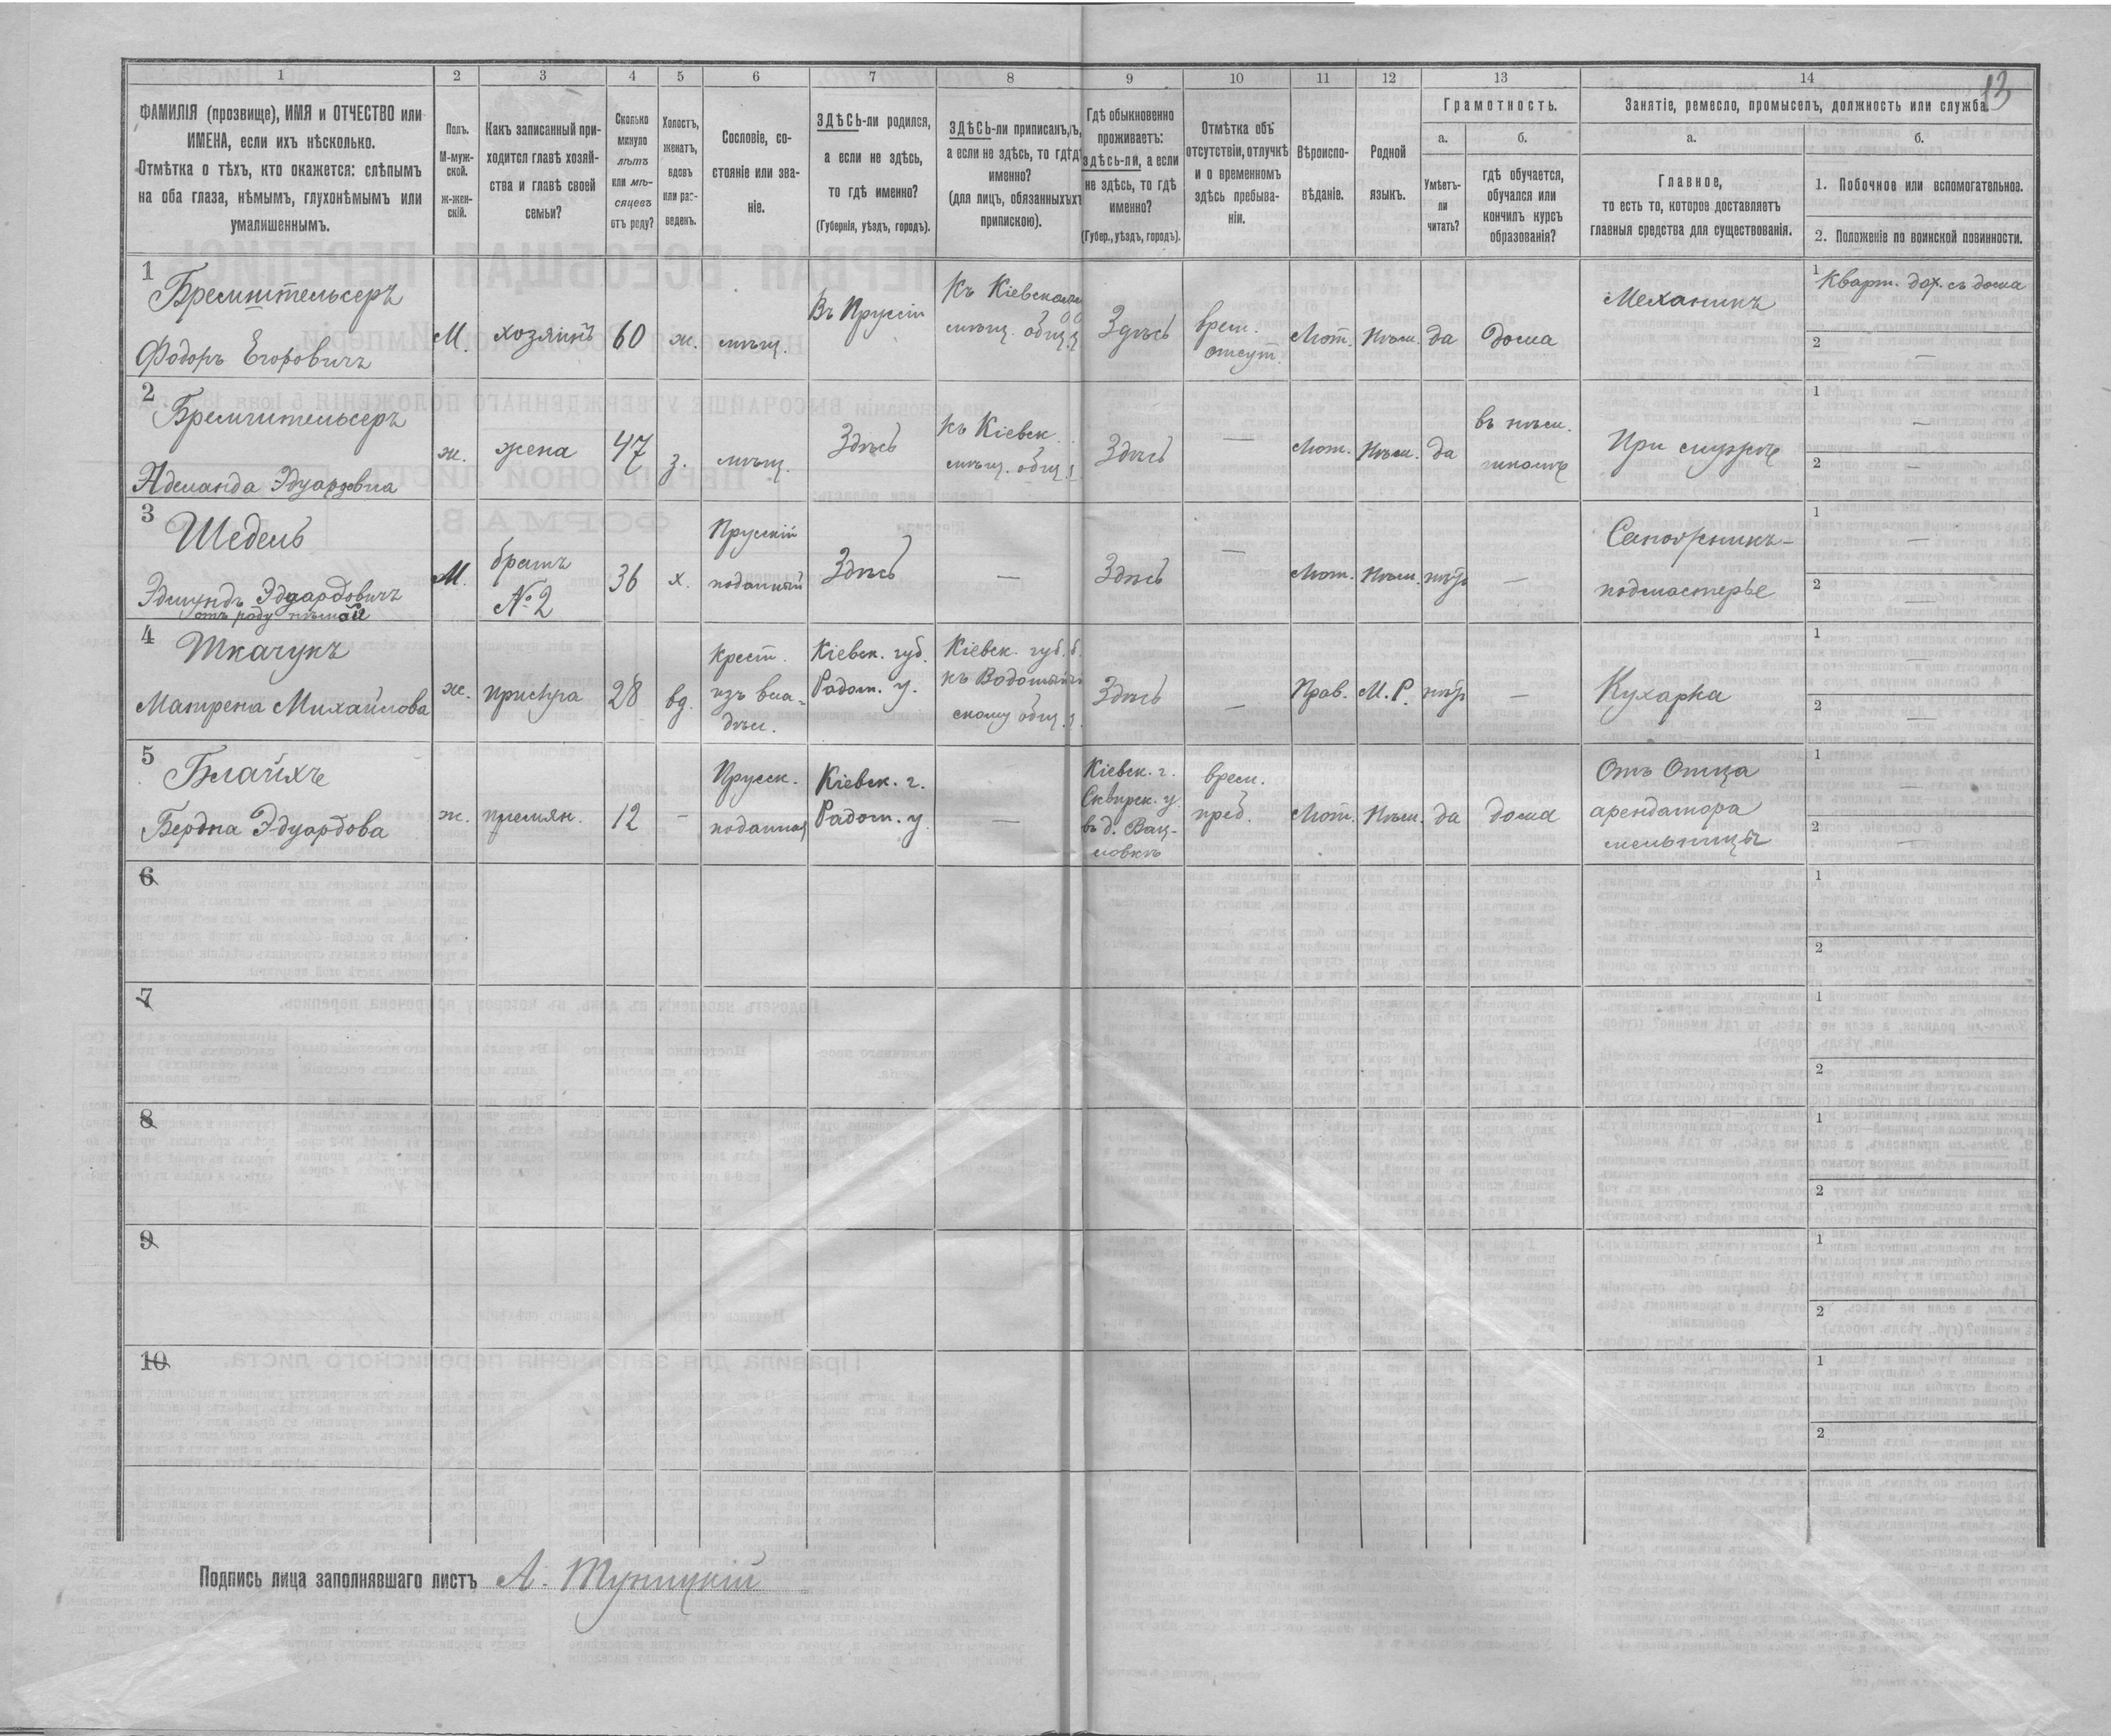 13
1 2 3 4 5 6 7 8 9 10 11 12 13 14
ФАМИЛІЯ (прозвище), ИМЯ и ОТЧЕСТВО или
ИМЕНА, если ихъ нѣсколько.
Отмѣтка о тѣхъ, кто окажется: слѣпымъ
на оба глаза, нѣмымъ, глухонѣмымъ или
умалишеннымъ.
Полъ.
М-муж-
ской.
ж-жен-
скій.
Какъ записанный при-
ходится главѣ хозяй-
ства и главѣ своей
семьи?
Сколько
минуло
лѣтъ
или мѣ-
сяцевъ
отъ роду?
Холостъ,
женатъ,
вдовъ
или раз-
веденъ.
Сословіе, со-
стояніе или зва-
ніе.
ЗДѢСЬ-ли родился,
а если не здѣсь,
то гдѣ именно?
(Губернія, уѣздъ, городъ).
ЗДѢСЬ-ли приписанъ,
а если не здѣсь, то гдѣ
именно?
(для лицъ, обязанныхъ
припискою).
Гдѣ обыкновенно
проживаетъ:
здѣсь-ли, а если
не здѣсь, то гдѣ
именно?
(Губер., уѣздъ, городъ).
Отмѣтка объ
отсутствіи, отлучкѣ
и о временномъ
здѣсь пребыва-
ніи.
Вѣроиспо-
вѣданіе.
Родной
языкъ.
Грамотность.
а.
Умѣетъ-
ли
читать?
б.
гдѣ обучается,
обучался или
кончилъ курсъ
образованія?
Занятіе, ремесло, промыселъ, должность или служба.
а.
Главное,
то есть то, которое доставляетъ
главныя средства для существованія.
б.
1. Побочное или вспомогательное.
2. Положеніе по воинской повинности.
1
Бремштельсеръ
Фодоръ Егоровичъ
М.
хозяинъ
60
ж.
мѣщ.
Въ Пруссіи
Къ Кіевском
мѣщ. общ.
Здѣсь
врем.
отсут.
Лют.
Нѣм.
да
дома
Механикъ
1 Кварт. дох. съ дома
2 —
2
Бремштельсеръ
Адельанда Эдуардовна
ж.
жена
47
з.
мѣщ.
Здѣсь
Къ Кіевск.
мѣщ. общ.
Здѣсь
—
Лют.
Нѣм.
да
въ нѣм.
школѣ
При мужѣ
1 —
2 —
3
Шедель
Эдмундъ Эдуардовичъ
отъ роду нѣмой
М.
братъ
№ 2
36
х.
Прускій
поданный
Здѣсь
—
Здѣсь
—
Лют.
Нѣм.
нѣтъ
—
Сапожникъ-
подмастерье
1 —
2 —
4
Ткачукъ
Матрена Михайлова
ж.
прислуга
28
вд.
Крест.
изъ вла-
дѣл.
Кіевск. губ.
Радом. у.
Кіевск. губ.
скому общ.
Здѣсь
—
Прав.
М. Р.
нѣтъ
—
Кухарка
1 —
2 —
5
Блайхъ
Берта Эдуардова
ж.
племян.
12
-
Прусск.
поданная
Кіевск. г.
Радом. у.
—
Кіевск. г.
Сквирск. у.
въ д. Вац-
ловкѣ
врем.
преб.
Лют.
Нѣм.
да
дома
Отъ Отца
арендатора
мельницы
1 —
2 —
6
1
2
7
1
2
8
1
2
9
1
2
10
1
2
Подпись лица заполнявшаго листъ А. Туницкій